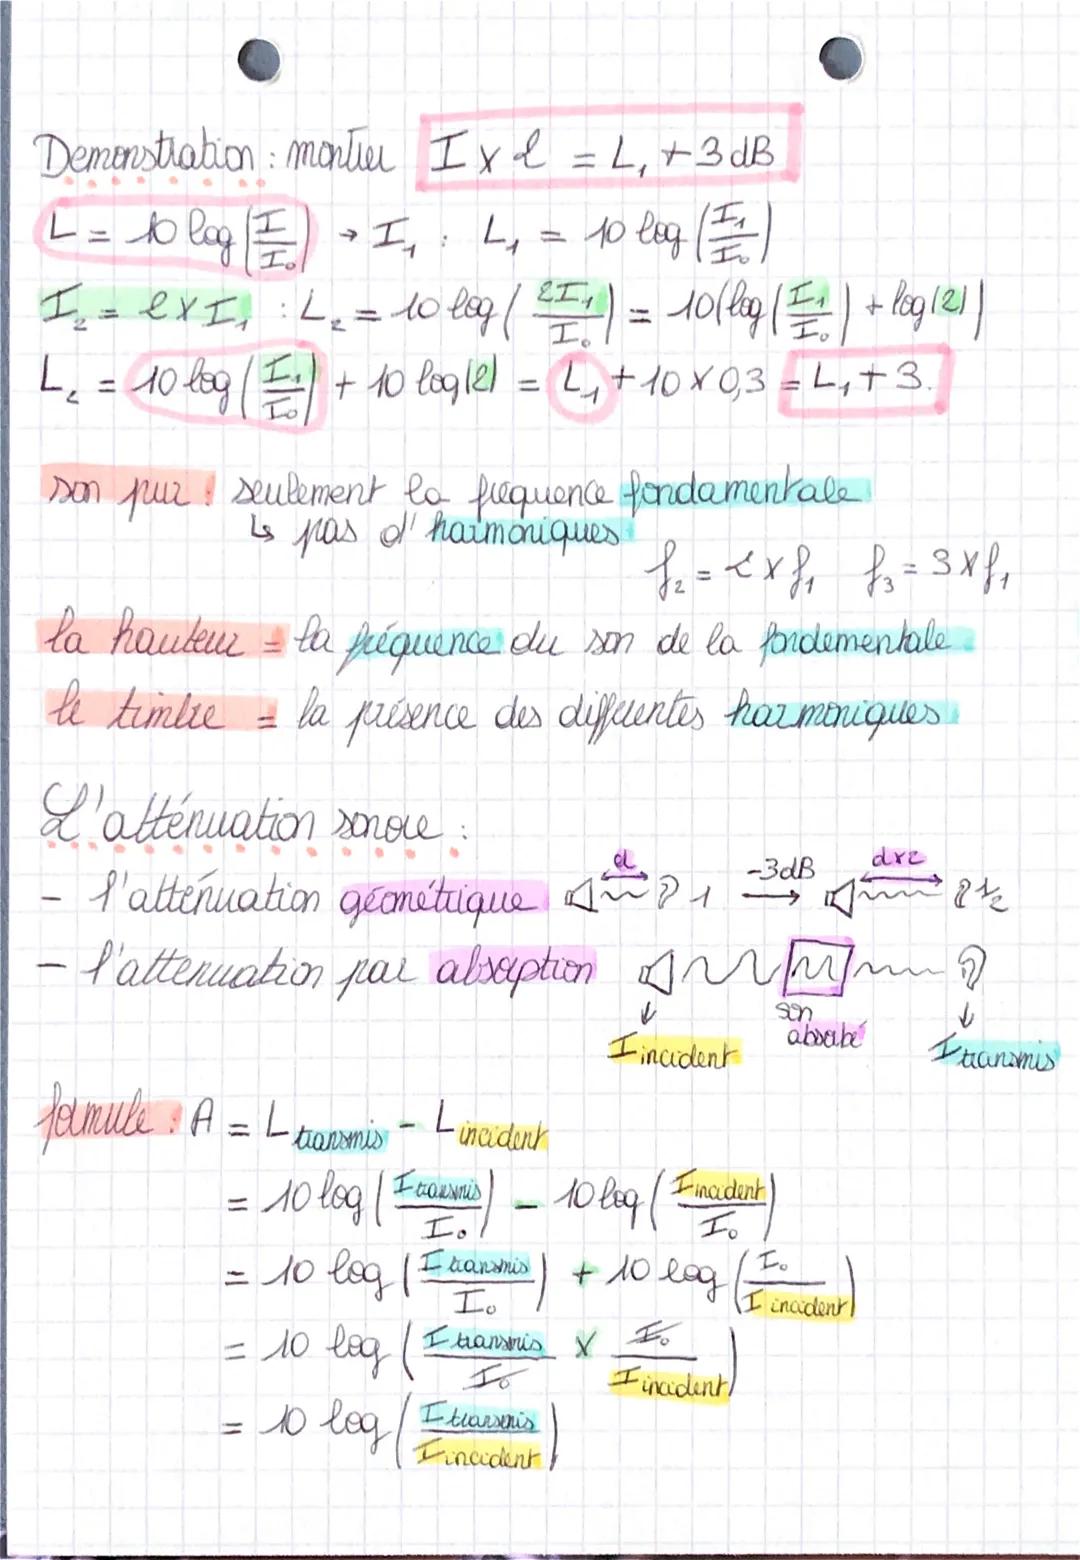 Demonstration : montrer I x 2 = L₁ + 3 dB
L = 10 log (I/I₀) → I₁ : L₁ = 10 log (I₁/I₀)
I₂ = 2 x I₁ : L₂ = 10 log (2I₁/I₀) = 10(log (I₁/I₀) + log(2))
L₂ = 10 log (I₁/I₀) + 10 log(2) = L₁ + 10 x 0,3 = L₁ + 3.
son pur : seulement la fréquence fondamentale
↳ pas d'harmoniques
f₂ = 2 x f₁ f₃ = 3 x f₁
la hauteur = la fréquence du son de la fondementale
le timbre = la présence des differentes harmoniques
L'atténuation sonore :
- l'atténuation géométrique d 1 -3dB → dx2 1/2
- l'attenuation par absorption
↓ son absorbé ↓
I incident I transmis
formule : A = L transmis - L incident
= 10 log (I transmis/I₀) - 10 log (I incident/I₀)
= 10 log (I transmis/I₀) + 10 log (I₀/I incident)
= 10 log (I transmis/I₀ x I₀/I incident)
= 10 log (I transmis/I incident)